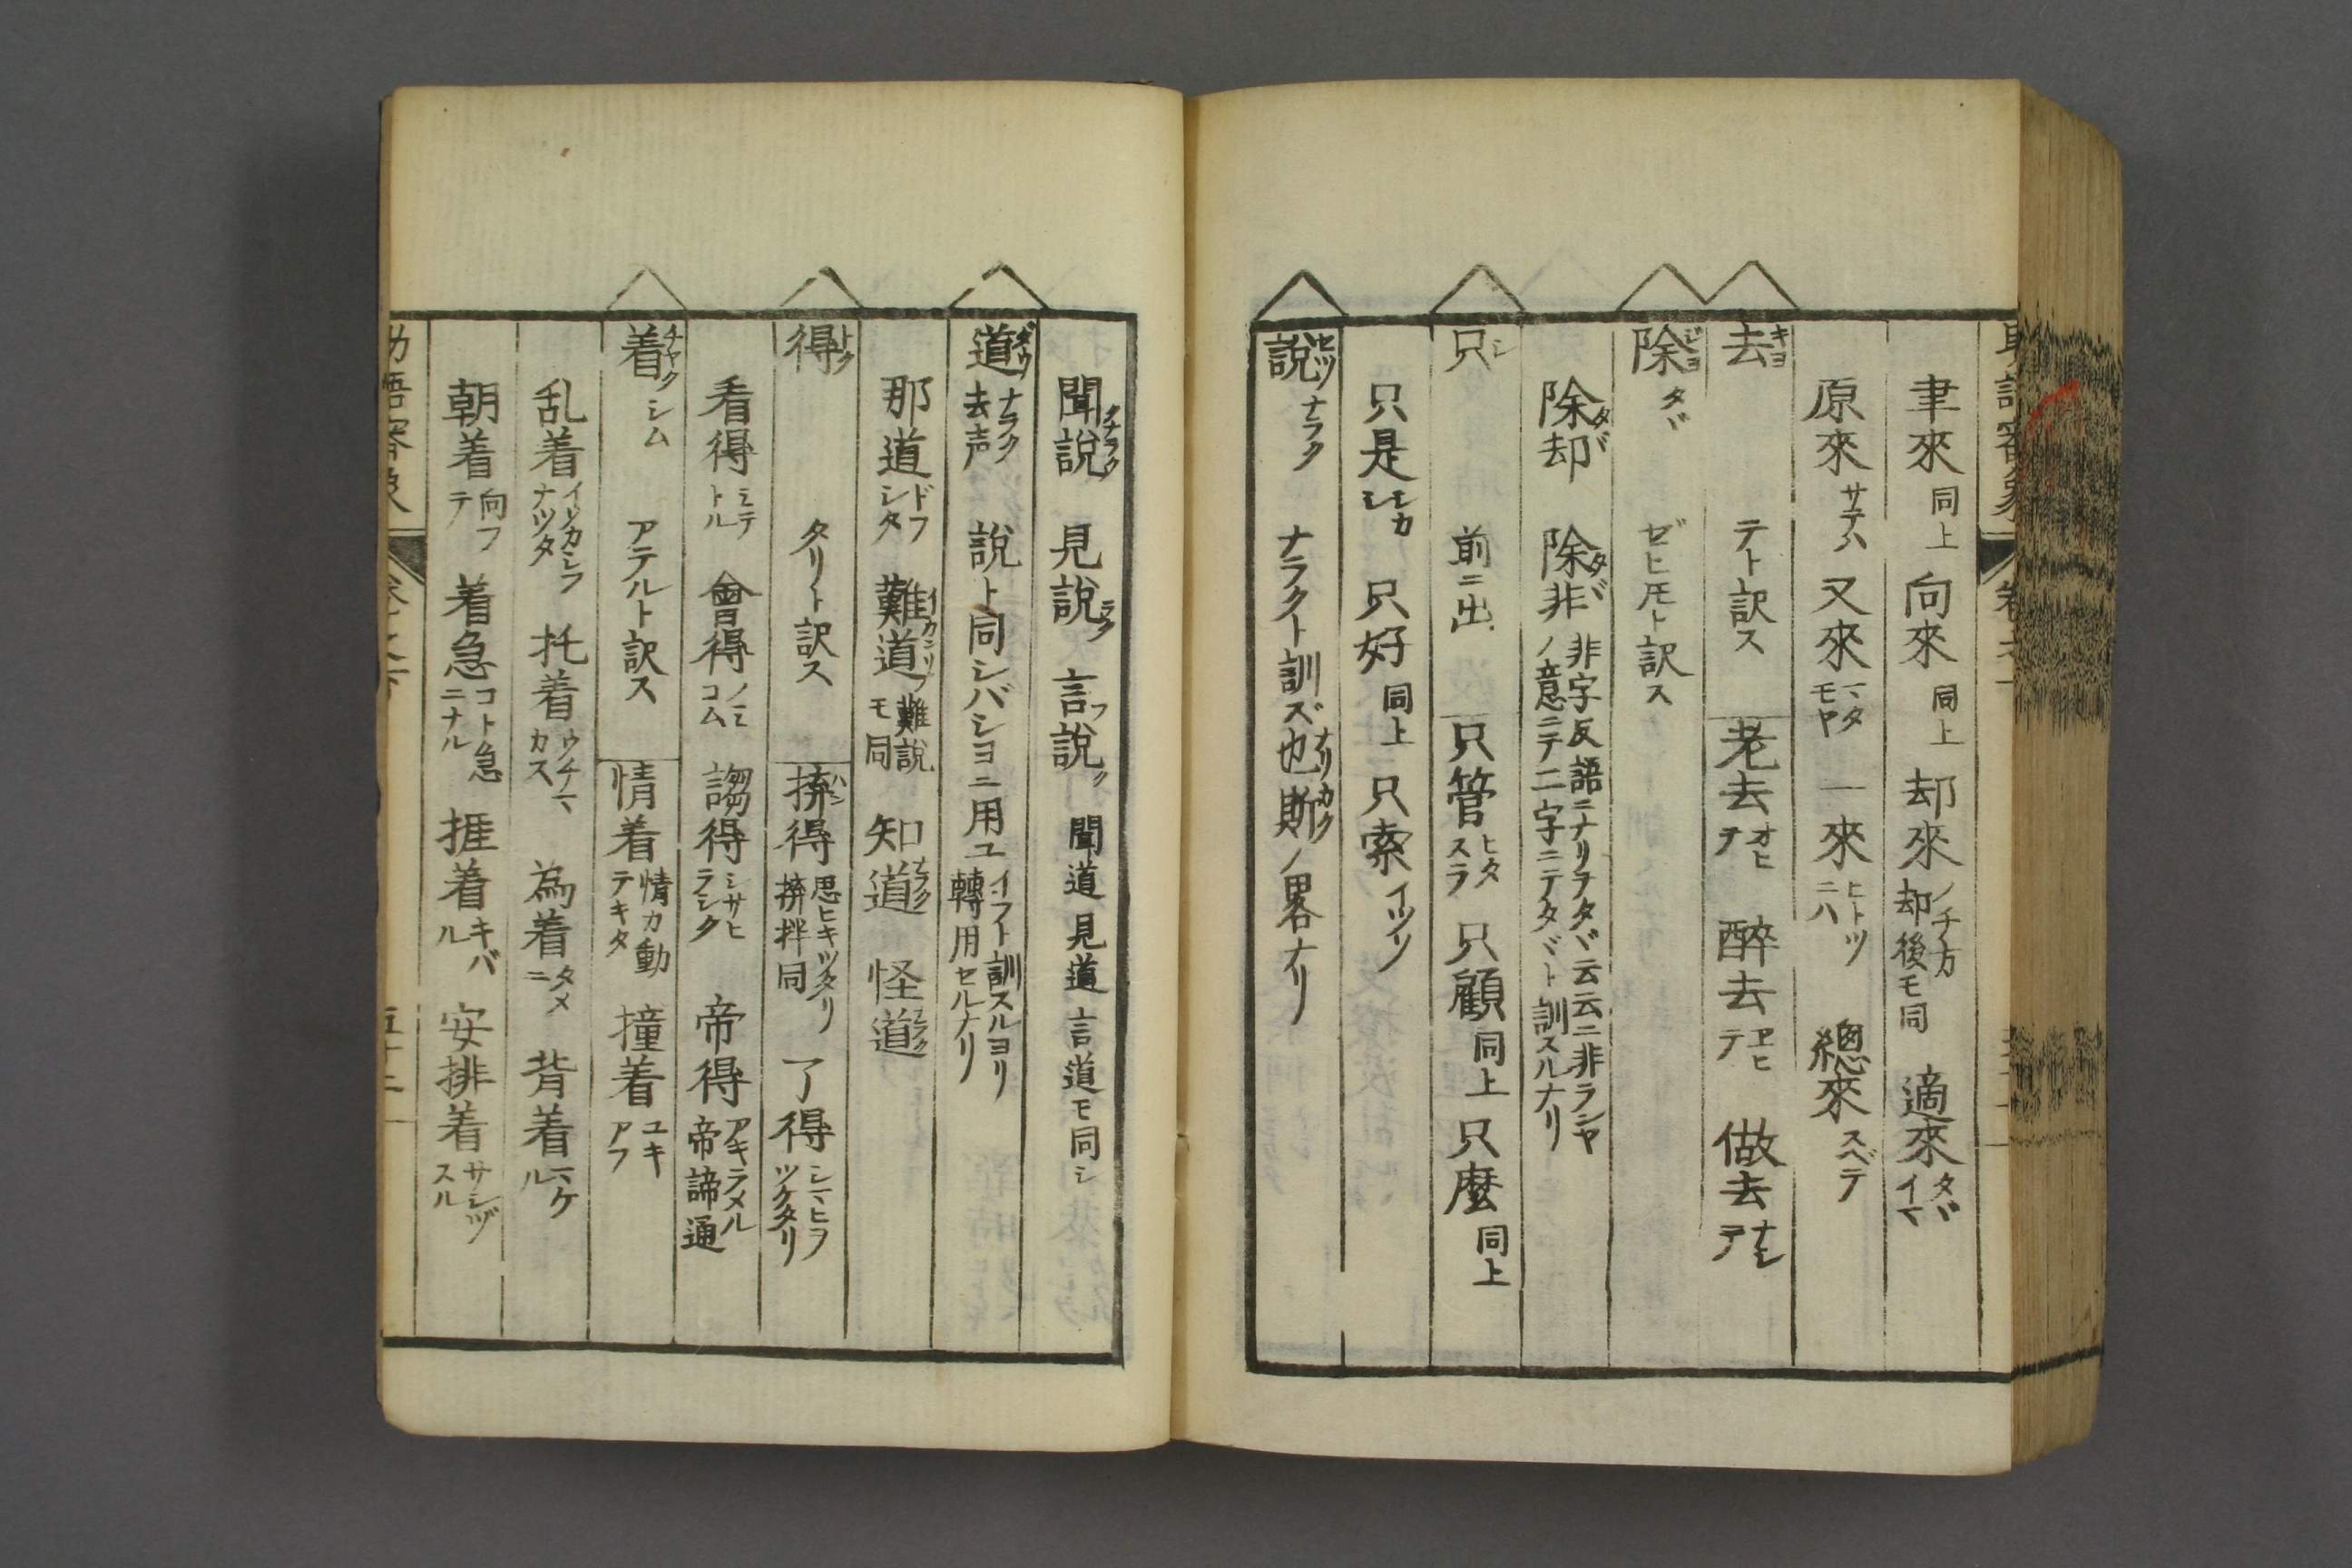 聿來 同上 向來 同上 却來 ノチ方 却後モ同 適來 タヾイマ
原來 サテハ 又來 マタモヤ 一來 ヒトツニハ 總來 スベテ
去 キヨ テト訳ス 老去 オヒテ 醉去 ヱヒテ 做去 ナシテ
除 ジヨ タヾ ゼヒトモト訳ス
除却 タヾ 除非 タヾ 非字反語ニナリヲタヾ云云ニ非ラシヤノ意ニテ二字ニテタヾト訓スルナリ
只 シ 前ニ出 只管 ヒタスラ 只顧 同上 只麼 同上
只是 シカシ 只好 同上 只索 イツソ
説 セツ ナラク ナラクト訓ズ也斯 ナリカク ノ畧ナリ
聞説 クナラク 見説 ラク 言説 フク 聞道見道言道モ同シ
道 ダウ ナラク 去声 説ト同シバシヨニ用ユ イフト訓スルヨリ轉用セルナリ
那道 ドフシタ 難道 イカンソ 難説モ同 知道 ナラク 怪道 ラク
得 トク タリト訳ス 𢬵得 ハン 思ヒキツタリ 拚拌同 了得 シマヒヲツケタリ
看得 ミテトル 會得 ノミコム 謅得 シサヒラシク 帝得 アキラメル 帝諦通
着 チヤク シム アテルト訳ス 情着 情カ動テキタ 撞着 ユキアフ
乱着 ナツタ 托着 ウチマカス 為着 タメニ 背着 マケル
朝着 向フテ 着急 コト急ニナル 捱着 キバル 安排着 サシヅスル